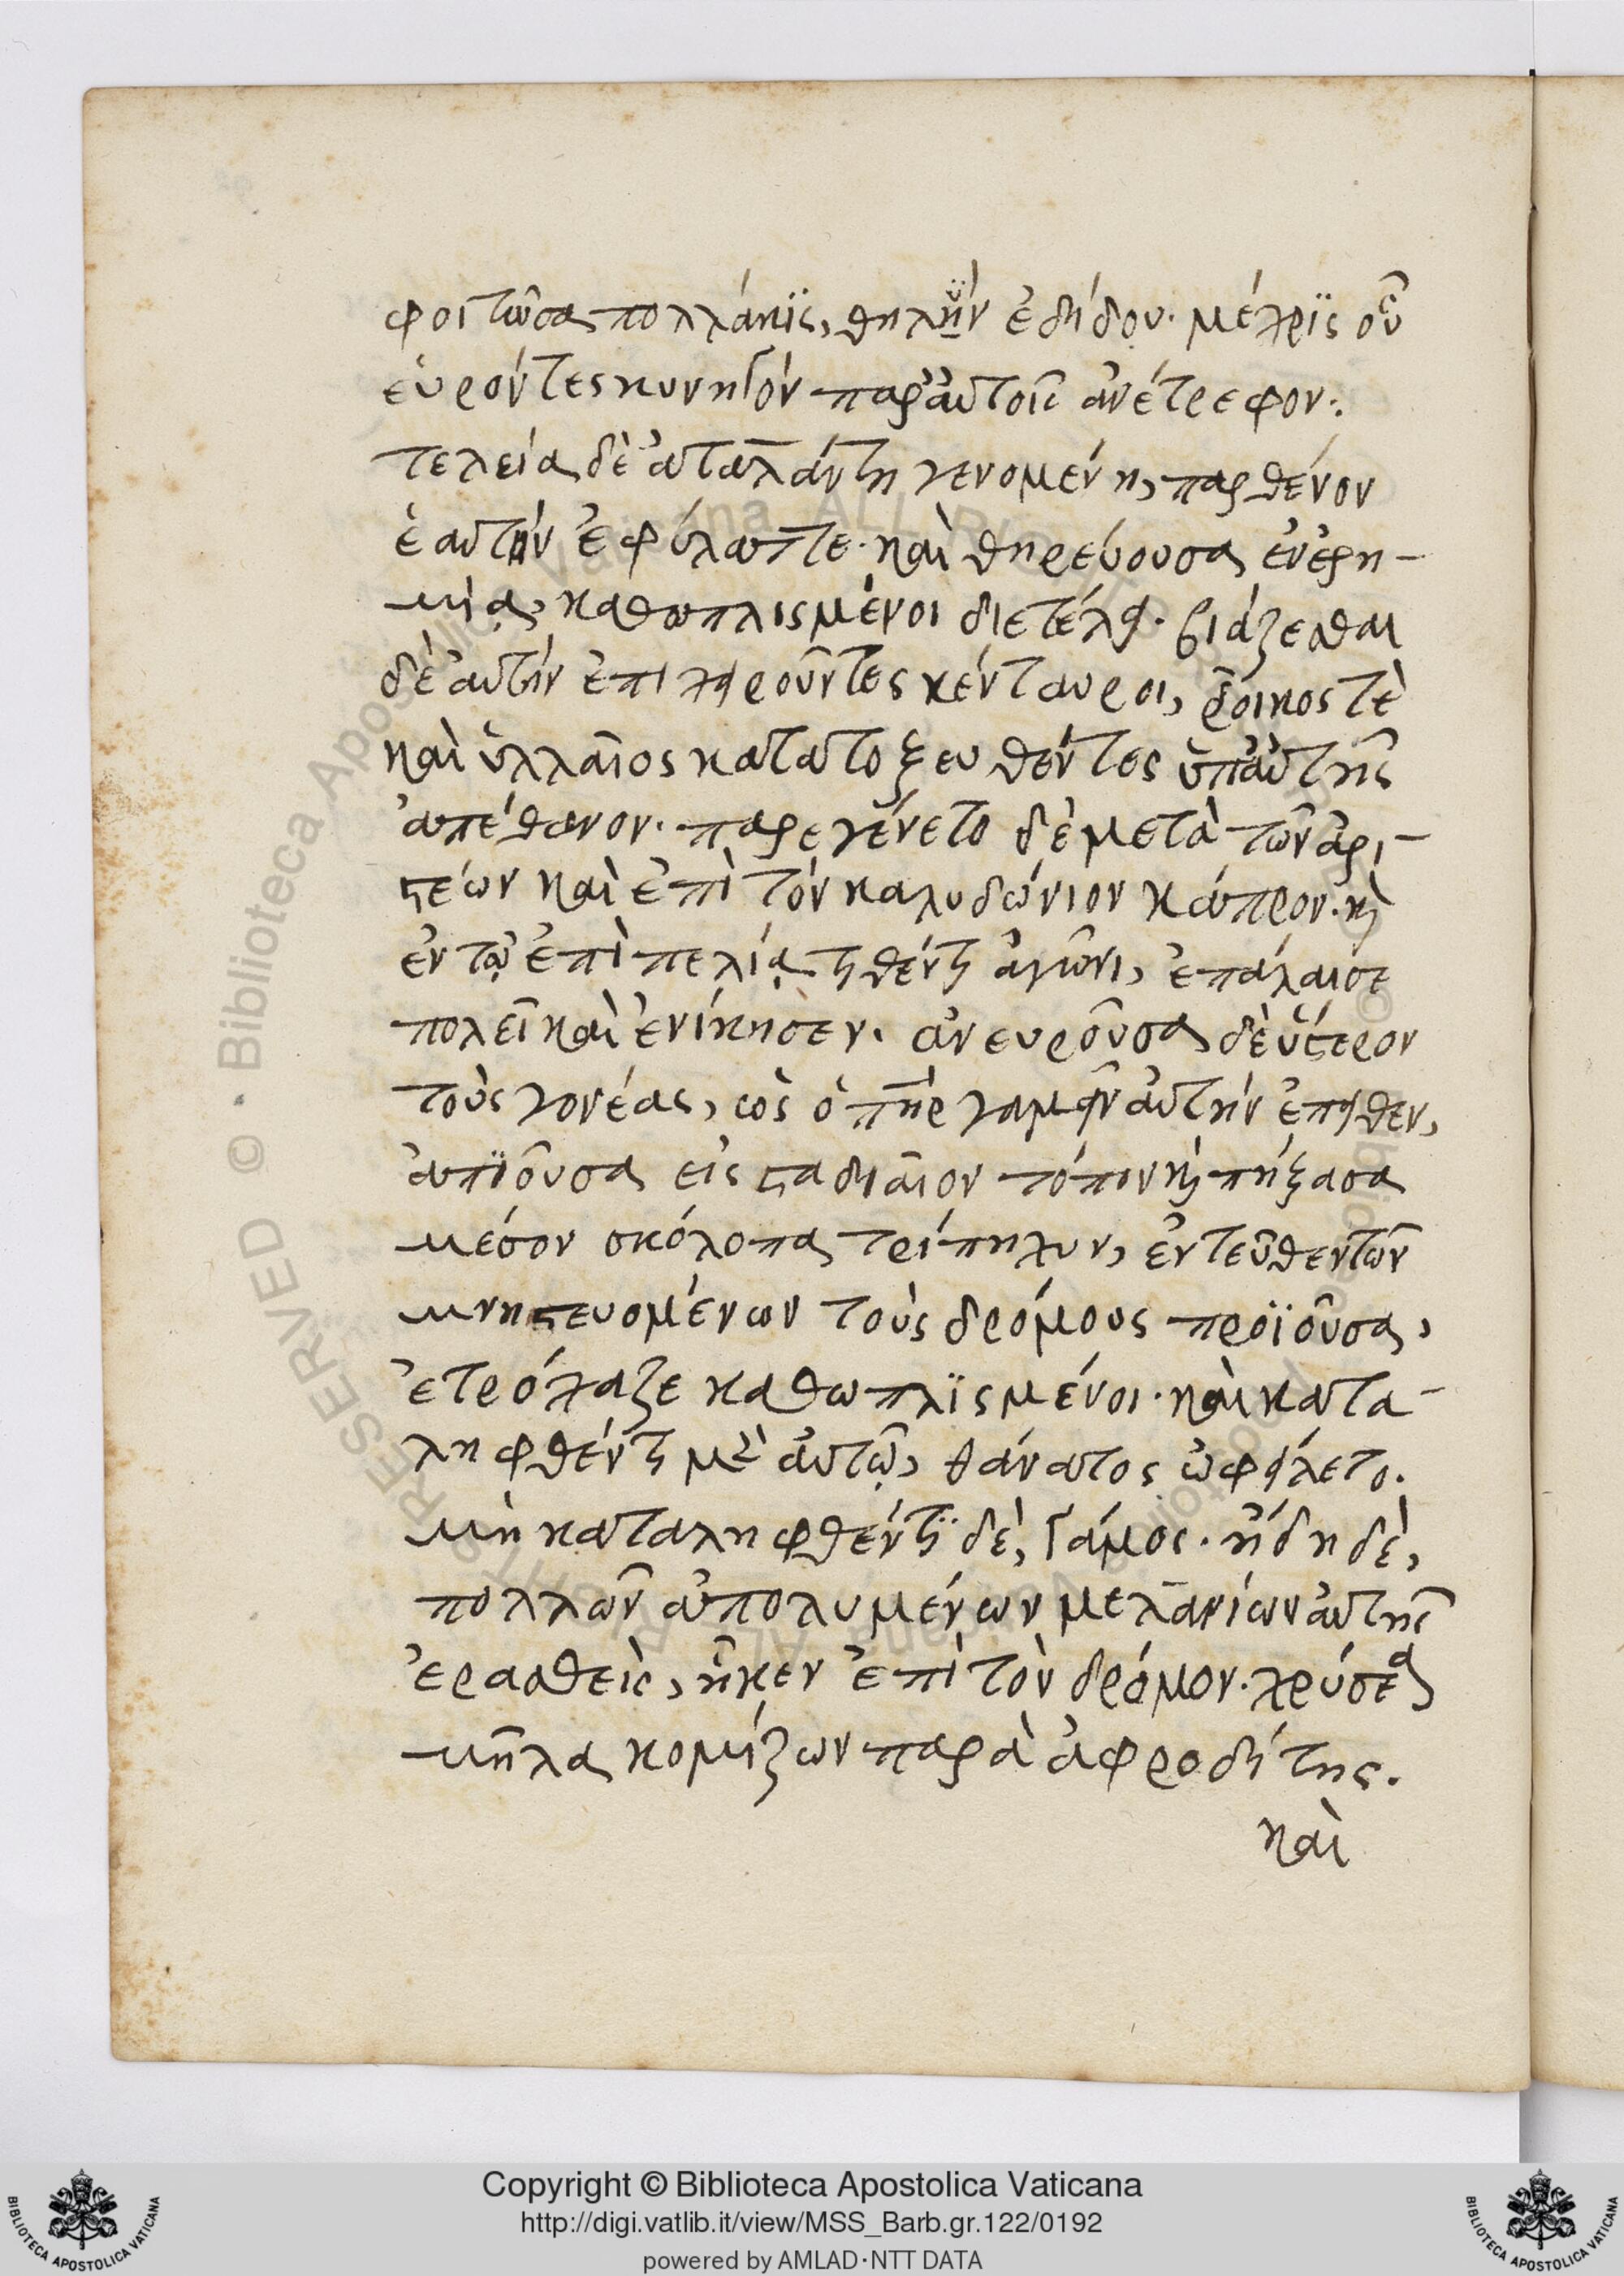 φοιτῶσα πολλάκϊς, θηλὴν ἐδίδου· μέχρϊς οὗ
εὑρόντες κυνηγὸν παρ' αὐτοῖς ἀνέτρεφον:
τελεία δὲ ἀταλάντη γενομένη, παρθένον
ἑαυτὴν ἐφύλαττε· καὶ θηρεύουσα ἐν ἐρη-
μίᾳ, καθωπλισμένοι διετέλει· βιάζεσθαι
δὲ αὐτὴν ἐπιχειροῦντες κένταυροι, ῥοῖκος τὲ
καὶ ὑλλαῖος κατατοξευθέντες ὑπ' αὐτῆς
ἀπέθανον· παρεγένετο δὲ μετὰ τῶν ἀρι-
στέων καὶ ἐπὶ τὸν καλυδώνιον κάπρον· κὶ
ἐν τῷ ἐπὶ πελίᾳ τεθέντι ἀγῶνι, ἐπάλαισε
πολεῖ καὶ ἐνίκησεν. ἀνευροῦσα δὲ ὕστερον
τοὺς γονέας, ὡς ὁ πῆρ γαμεῖν αὐτὴν ἔπειθεν,
ἀπϊοῦσα εἰς σταδιαῖον τόπον κὶ πήξασα
μέσον σκόλοπα τρίπηχυν, ἐντεῦθεν τῶν
μνηστευομένων τοὺς δρόμους προϊοῦσα,
ἐτρόχαζε καθωπλϊσμένοι· καὶ κατα-
ληφθέντι μὲ αὐτῷ, θάνατος ὠφείλετο.
μὴ καταληφθέντϊ δὲ, γάμος· ἤδη δὲ,
πολλῶν ἀπολυμένων μελανίων αὐτῆς
ἐρασθεὶς, ἧκεν ἐπὶ τὸν δρόμον· χρύσεα
μῆλα κομίζων παρὰ ἀφροδίτης.
καὶ
Copyright © Biblioteca Apostolica Vaticana
http://digi.vatlib.it/view/MSS_Barb.gr.122/0192
powered by AMLAD·NTT DATA